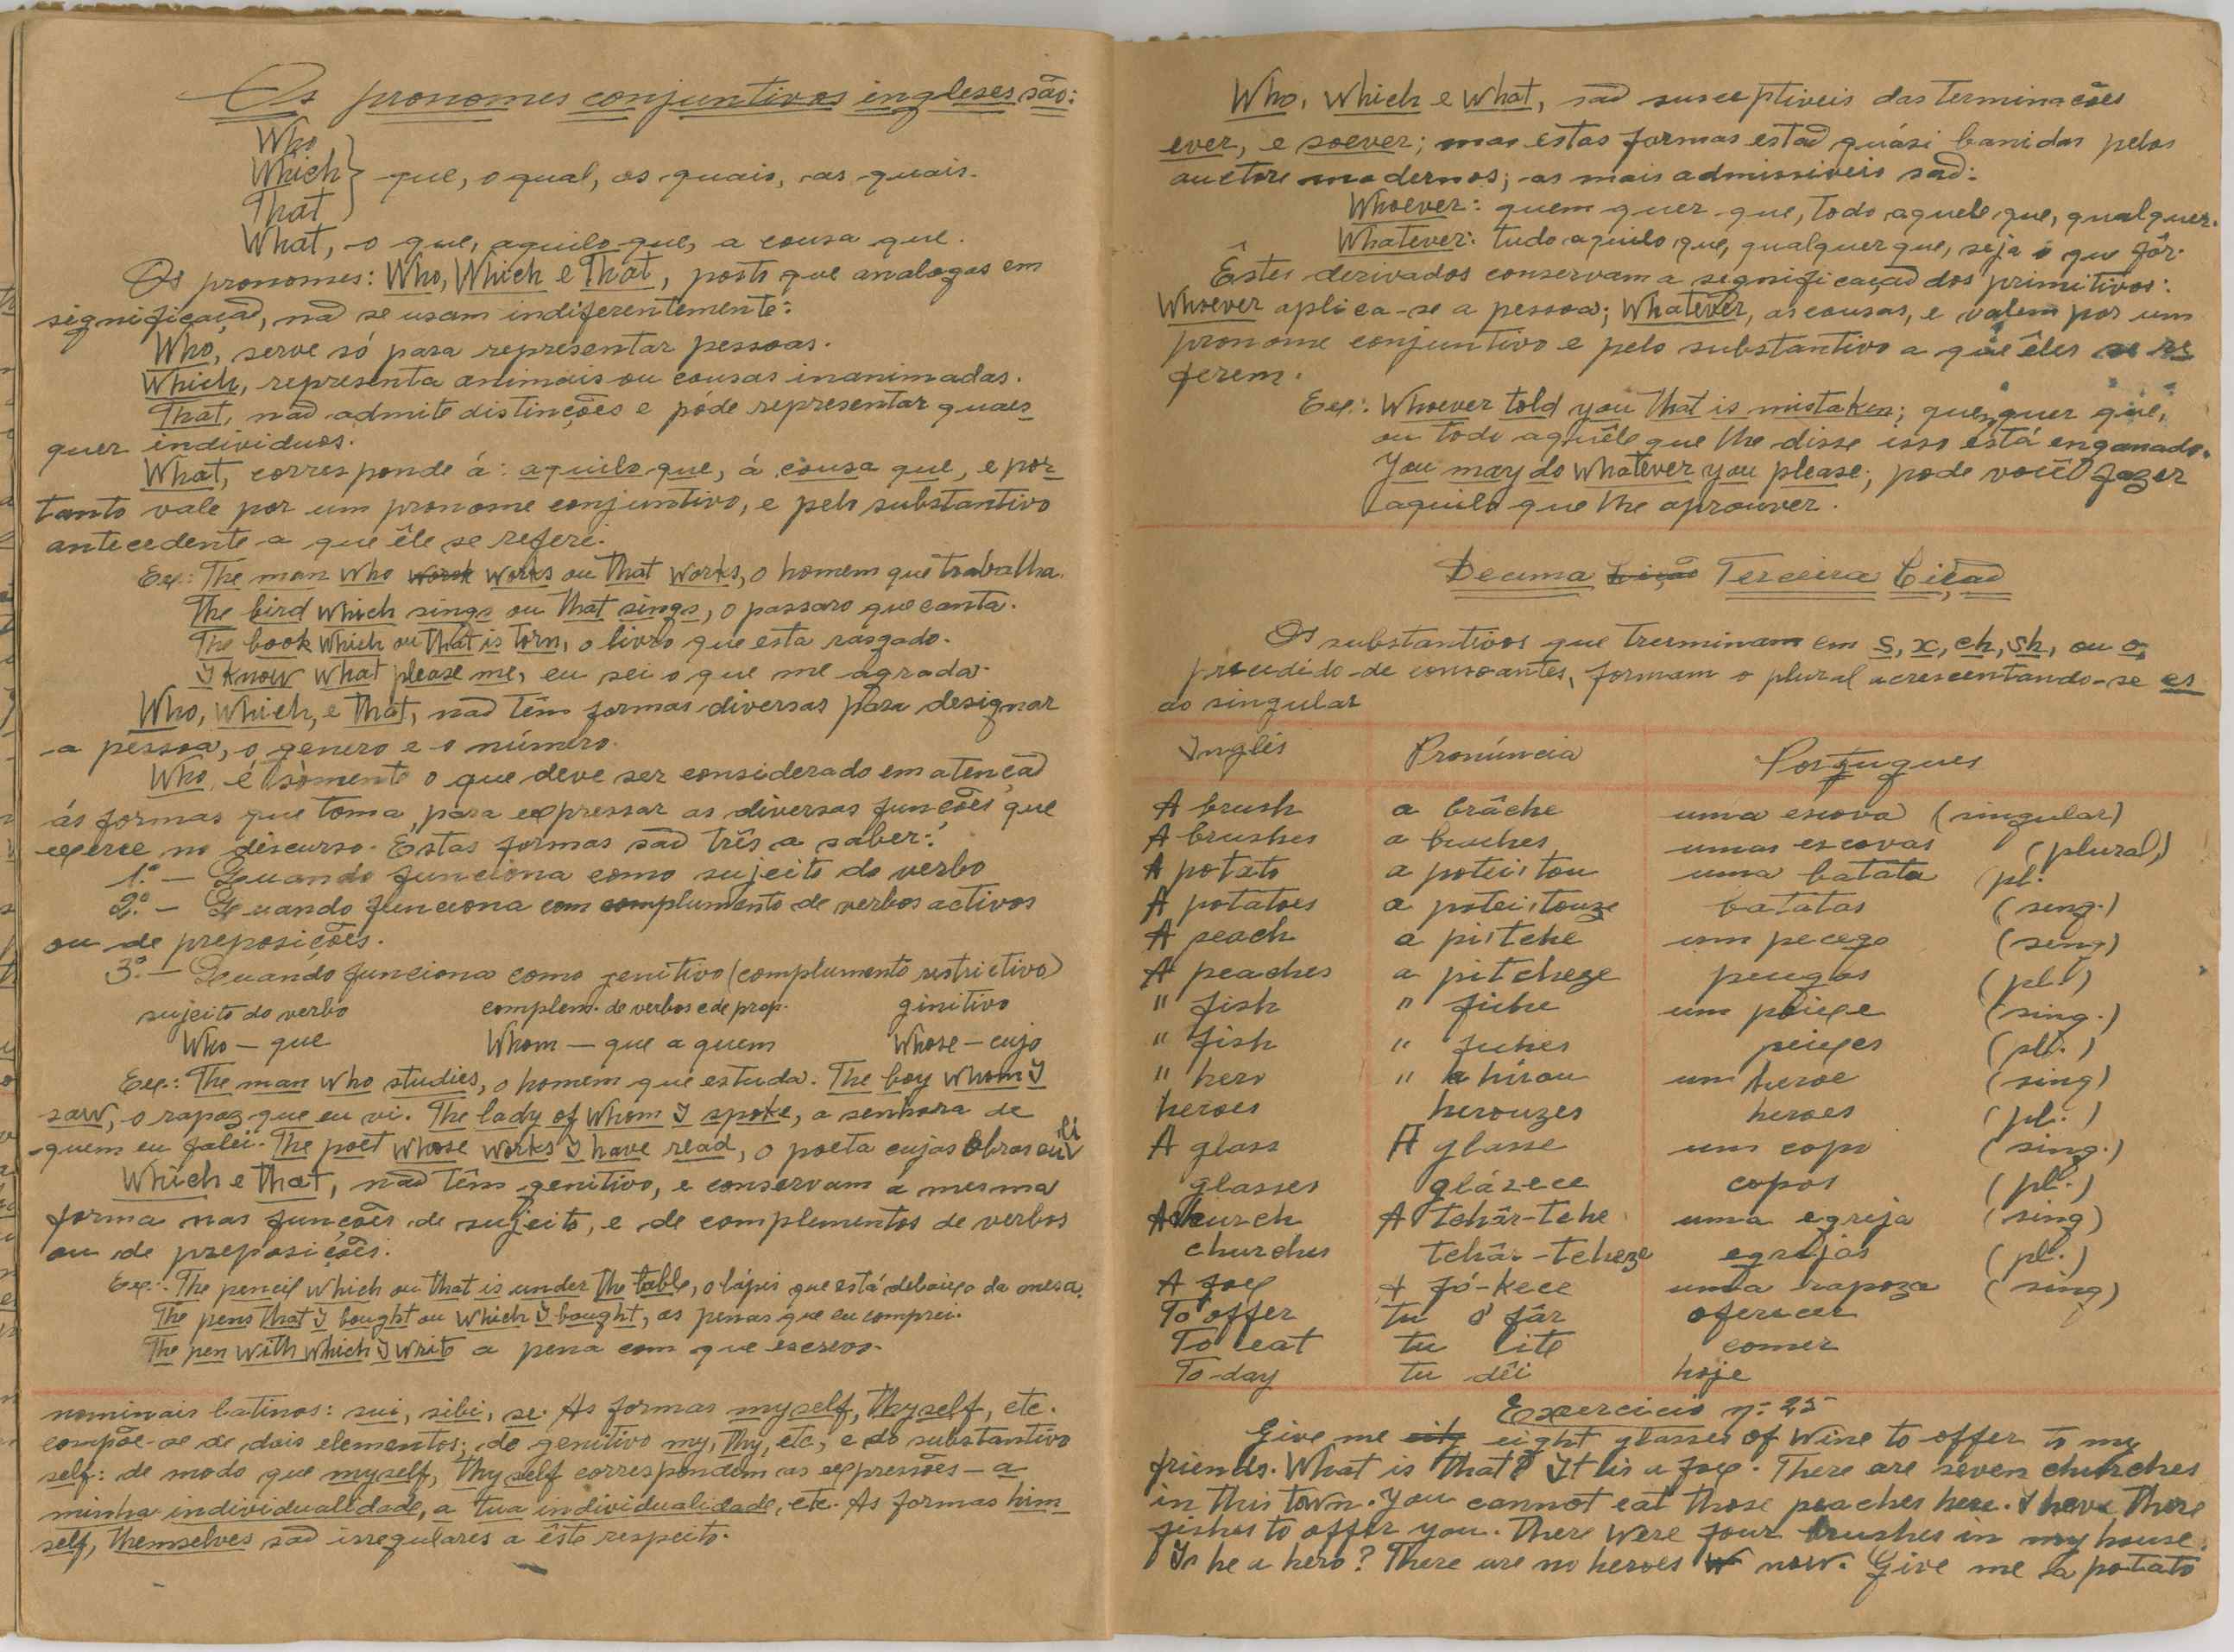 Os pronomes conjuntivos ingleses são:
Who
Which } que, o qual, os quais, as quais.
That
What, o que, aquilo que, a cousa que.
Os pronomes: Who, Which e That, posto que analogas em
significação, não se usam indiferentemente:
Who, serve só para representar pessoas.
Which, representa animais ou cousas inanimadas.
That, não admite distinções e póde representar quaes-
quer individuos.
What, corresponde á: aquilo que, á cousa que, e por-
tanto vale por um pronome conjuntivo, e pelo substantivo
antecedente a que êle se refere.
Ex.: The man who work works ou that works, o homem que trabalha.
The bird which sings ou that sings, o passaro que canta.
The book which ou that is torn, o livro que esta rasgado.
I know what please me, eu sei o que me agrada.
Who, which, e that, não têm formas diversas para designar
a pessoa, o genero e o número.
Who, é sòmente o que deve ser considerado em atenção
ás formas que toma, para expressar as diversas funções que
exerce no discurso. Estas formas são três a saber:
1.º — Quando funciona como sujeito do verbo
2.º — Quando funciona com complumento de verbos activos
ou de preposições.
3.º — Quando funciona como genitivo (complumento restrictivo)
sujeito do verbo complem. de verbos e de prop. ginitivo
Who — que Whom — que a quem Whose — cujo
Ex.: The man who studies, o homem que estuda. The boy whom I
saw, o rapaz que eu vi. The lady of whom I spoke, a senhora de
quem eu falei. The poet whose works I have read, o poeta cujas obras eu li
Which e that, não têm genitivo, e conservam a mesma
forma nas funções de sujeito, e de complementos de verbos
ou de preposições.
Ex.: The pencil which ou that is under the table, o lápis que está debaixo da mesa.
The pens that I bought ou which I bought, as penas que eu comprei.
The pen with which I write a pena com que escrevo.
nominais latinos: sui, sibi, se. As formas myself, thyself, etc.
compõe-se de dois elementos; do genitivo my, thy, etc, e do substantivo
self: de modo que myself, thyself correspondem as expressões — a
minha individualidade, a tua individualidade, etc. As formas him-
self, themselves são irregulares a êste respeito.
Who, which e what, são susceptiveis das terminações
ever, e soever; mas estas formas estão quási banidas pelos
auctore modernos; as mais admissiveis são:
Whoever: quem quer que, todo aquele que, qualquer.
Whatever: tudo aquilo que, qualquer que, seja o que fôr.
Êstes derivados conservam a significação dos primitivos:
Whoever aplica-se a pessoa; whatever, as cousas, e valem por um
pronome conjuntivo e pelo substantivo a que êles se re
ferem.
Ex.: Whoever told you that is mistaken; quem quer que,
ou todo aquêle que lhe disse isso está enganado.
You may do whatever you please; pode você fazer
aquilo que lhe aprouver.
Decima Lição Terceira Lição
Os substantivos que trerminam em s, x, ch, sh, ou o,
precedido de consoantes, formam o plural acrescentando-se es
ao singular
Inglês Pronúncia Portugues
A brush a brâche uma escova (singular)
A brushes a braches umas escovas (plural)
A potato a poteitou uma batata pl.
A potatoes a poteitouze batatas (sing.)
A peach a pitche um pecego (sing)
A peaches a pitcheze pecegos (pl.)
" fish " fiche um peixe (sing.)
" fish " fiches peixes (pl.)
" hero " a hirou um heroe (sing)
heroes herouzes heroes (pl.)
A glass A glasse um copo (sing.)
glasses glázece copos (pl.)
A church A tchâr-tche uma egreja (sing)
churches tchâr-tcheze egrejas (pl.)
A fox A fó-kece uma rapoza (sing)
To offer tu ó fâr oferecer
To eat tu ite comer
To-day tu dêi hoje
Exercicio nº 25
Give me eight glasses of wine to offer to my
friends. What is that? It is a fox. There are seven churches
in this town. You cannot eat those peaches here. I have there
fishes to offer you. There were four brushes in my house.
Is he a hero? There are no heroes now. Give me a potato